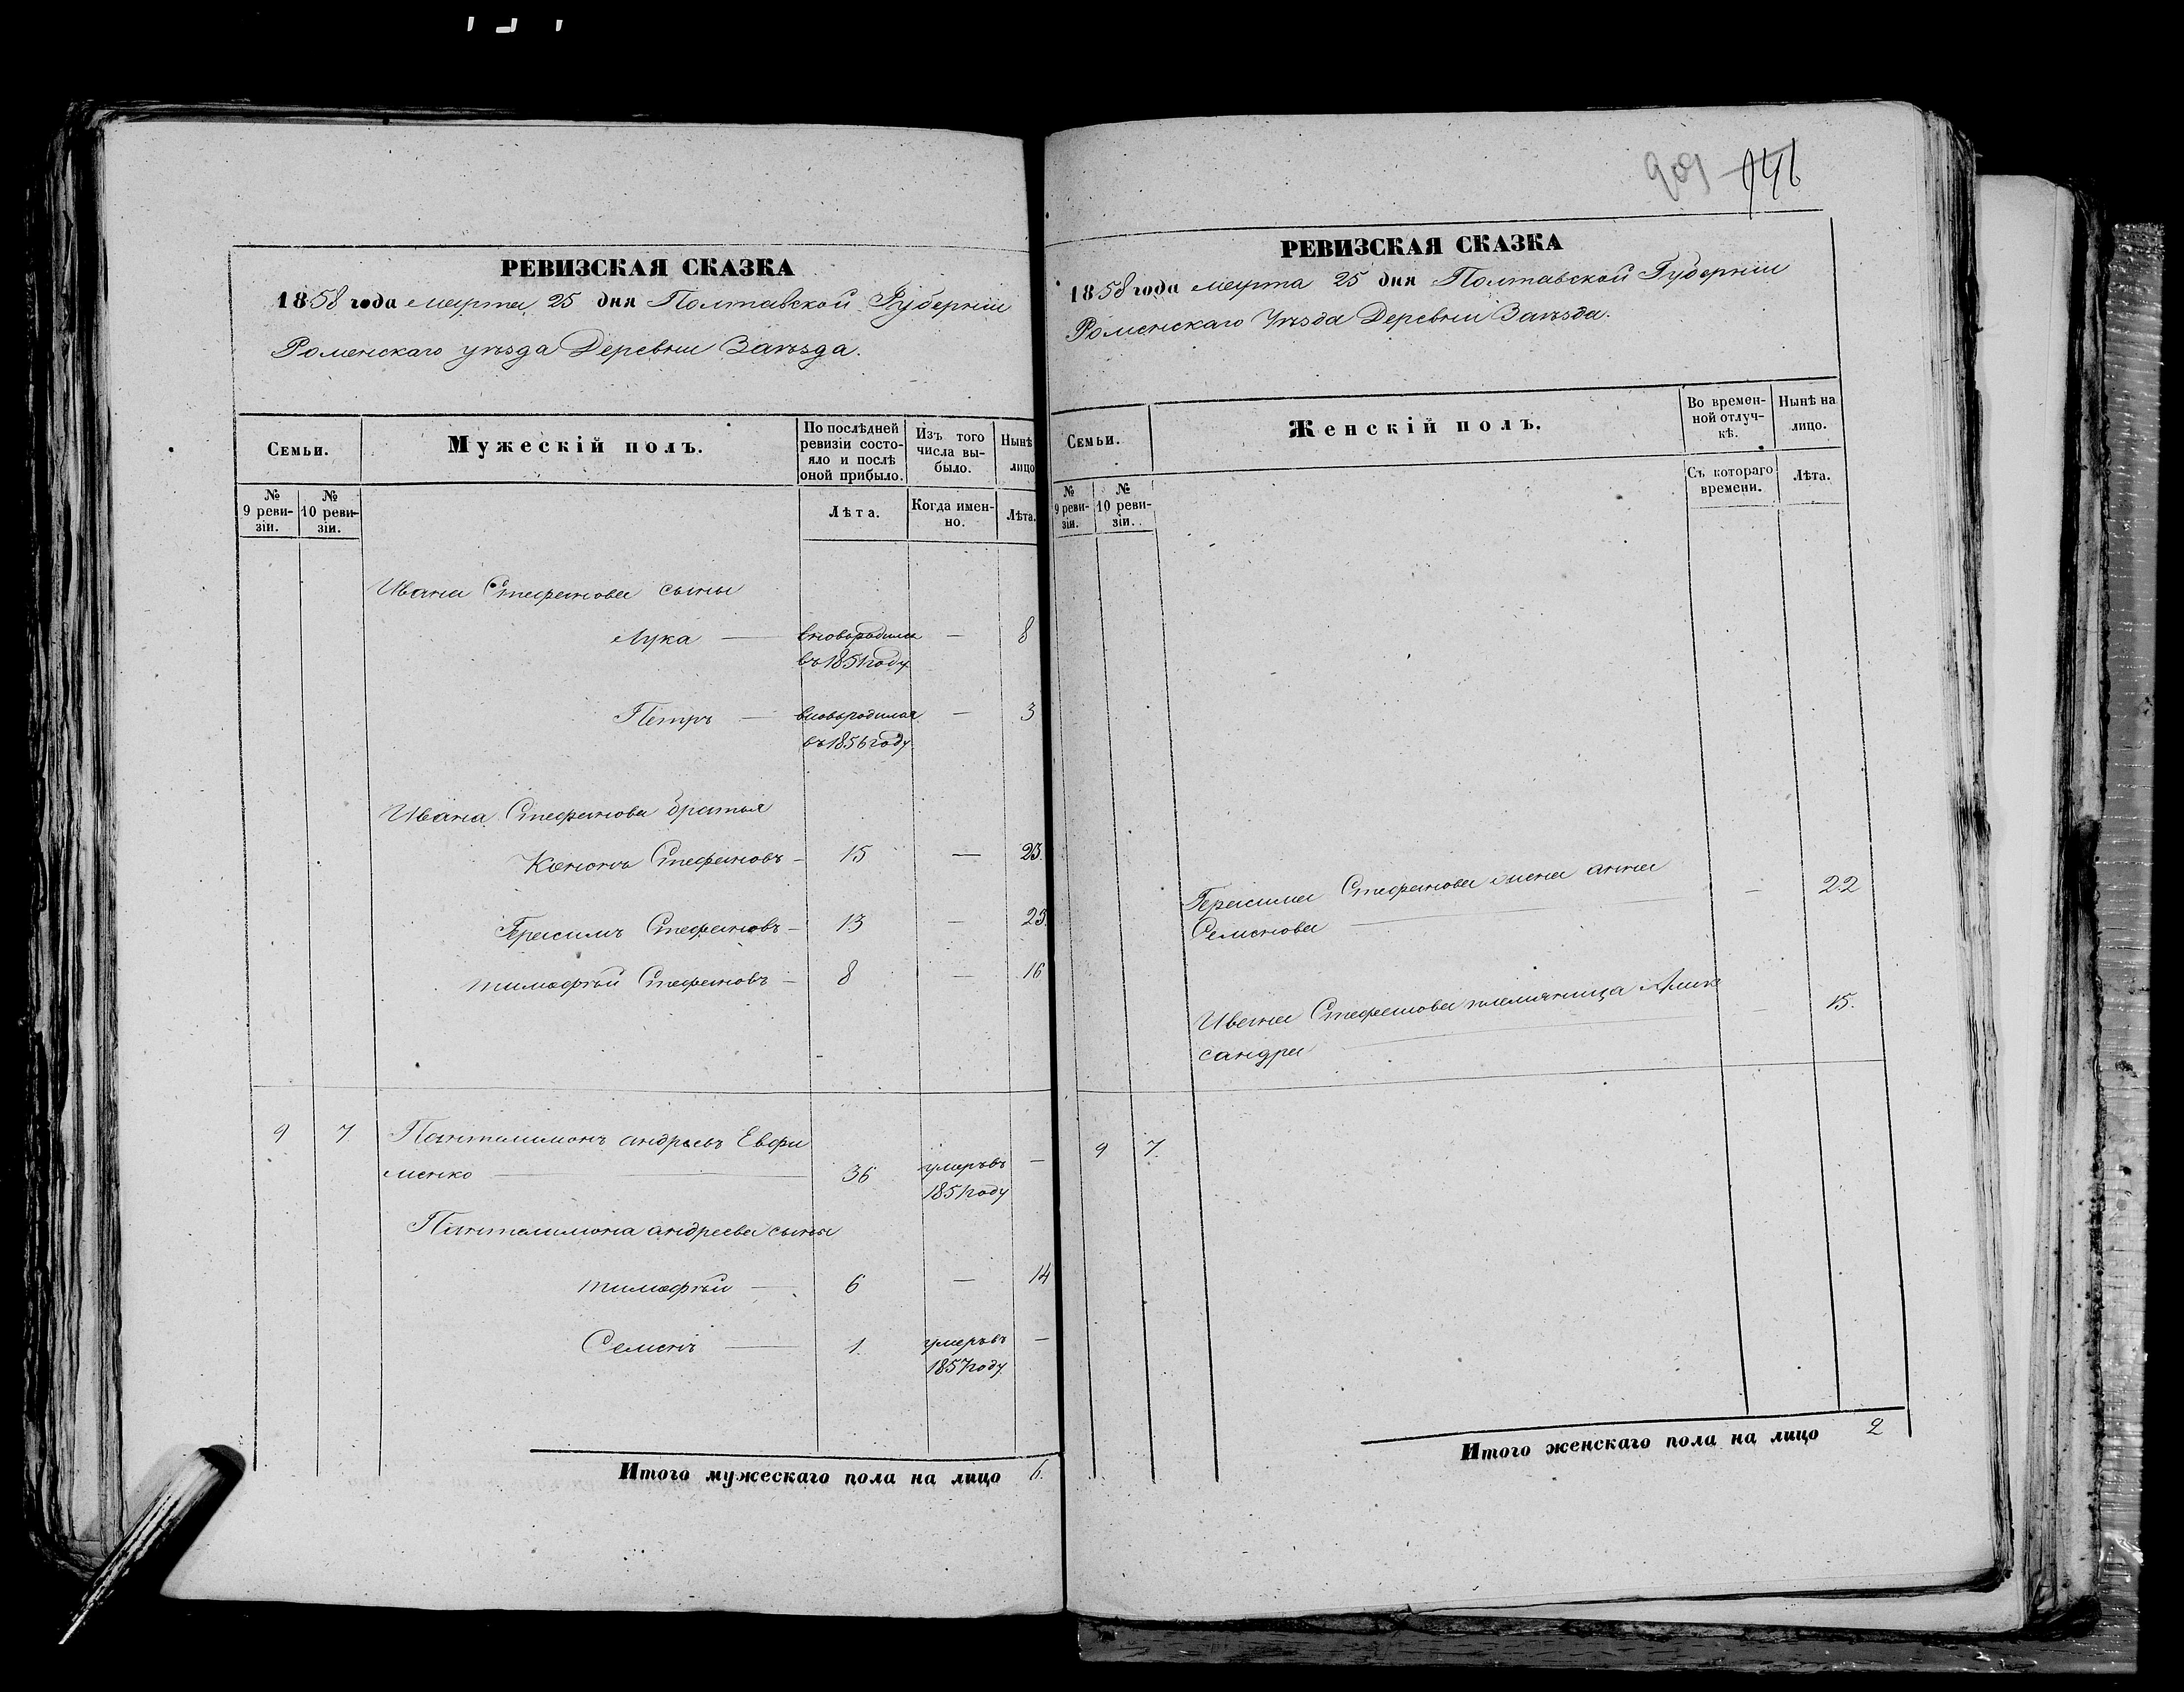 909 946
РЕВИЗСКАЯ СКАЗКА
1858 года марта 25 дня Полтавской Губернии
Роменскаго уѣзда Деревни Заѣзда.
Семьи.
Мужескій полъ.
По послѣдней ревизіи состояло и послѣ оной прибыло.
Изъ того числа выбыло.
Нынѣ лицо
№ 9 ревизіи.
№ 10 ревизіи.
Лѣта.
Когда именно.
Лѣта.
Ивана Стефанова сыны
Лука — вновьродился — 8
въ 1851 году
Петръ — вновьродился — 3
въ 1856 году
Ивана Стефанова братья
Кононъ Стефановъ — 15 — 23.
Герасимъ Стефановъ — 13 — 23.
тимофѣй Стефановъ — 8 — 16
9 7 Пантелимонъ андреевъ Евфи
менко — 36 умеръ въ —
1851 году
Пантелимона андреева сыны
тимофѣй — 6 — 14
Семенъ — 1. умеръ въ —
1857 году
Итого мужескаго пола на лицо 6.
РЕВИЗСКАЯ СКАЗКА
1858 года марта 25 дня Полтавской Губернии
Роменскаго Уѣзда Деревни Заѣзда.
Семьи.
Женскій полъ.
Во временной отлучкѣ.
Нынѣ на лицо.
№ 9 ревизіи.
№ 10 ревизіи.
Съ котораго времени.
Лѣта.
Герасима Стефанова жена анна — 22
Семенова —
Ивана Стефанова племянница Алек — 15.
сандра —
9 7.
Итого женскаго пола на лицо 2